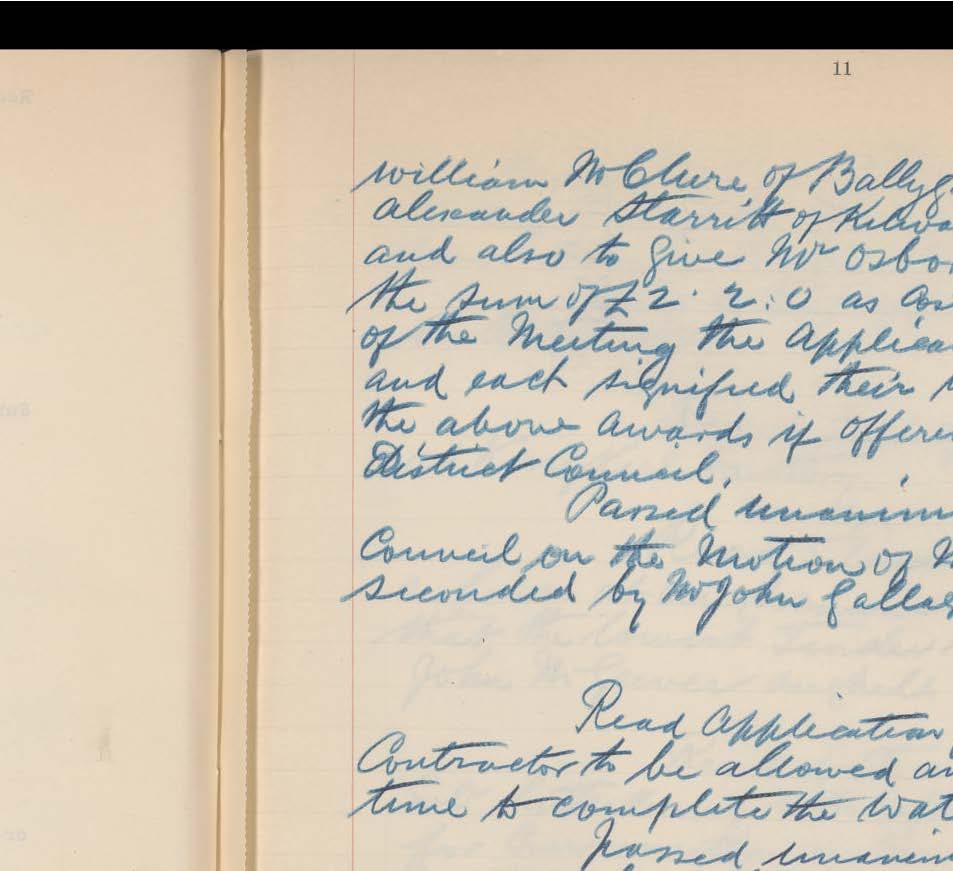 11
William McClure of Ballyg
Alexander Starritt of Kilwa
and also to give Mr Osbor
the sum of £2. 2. 0 as cos
of the Meeting the Applica
and each signified their
the above awards if offere
District Council.
Passed unanim
Council on the Motion of M
seconded by Mr John Gallag
Read Application
Contractor to be allowed an
time to complete the Wat
passed unanim